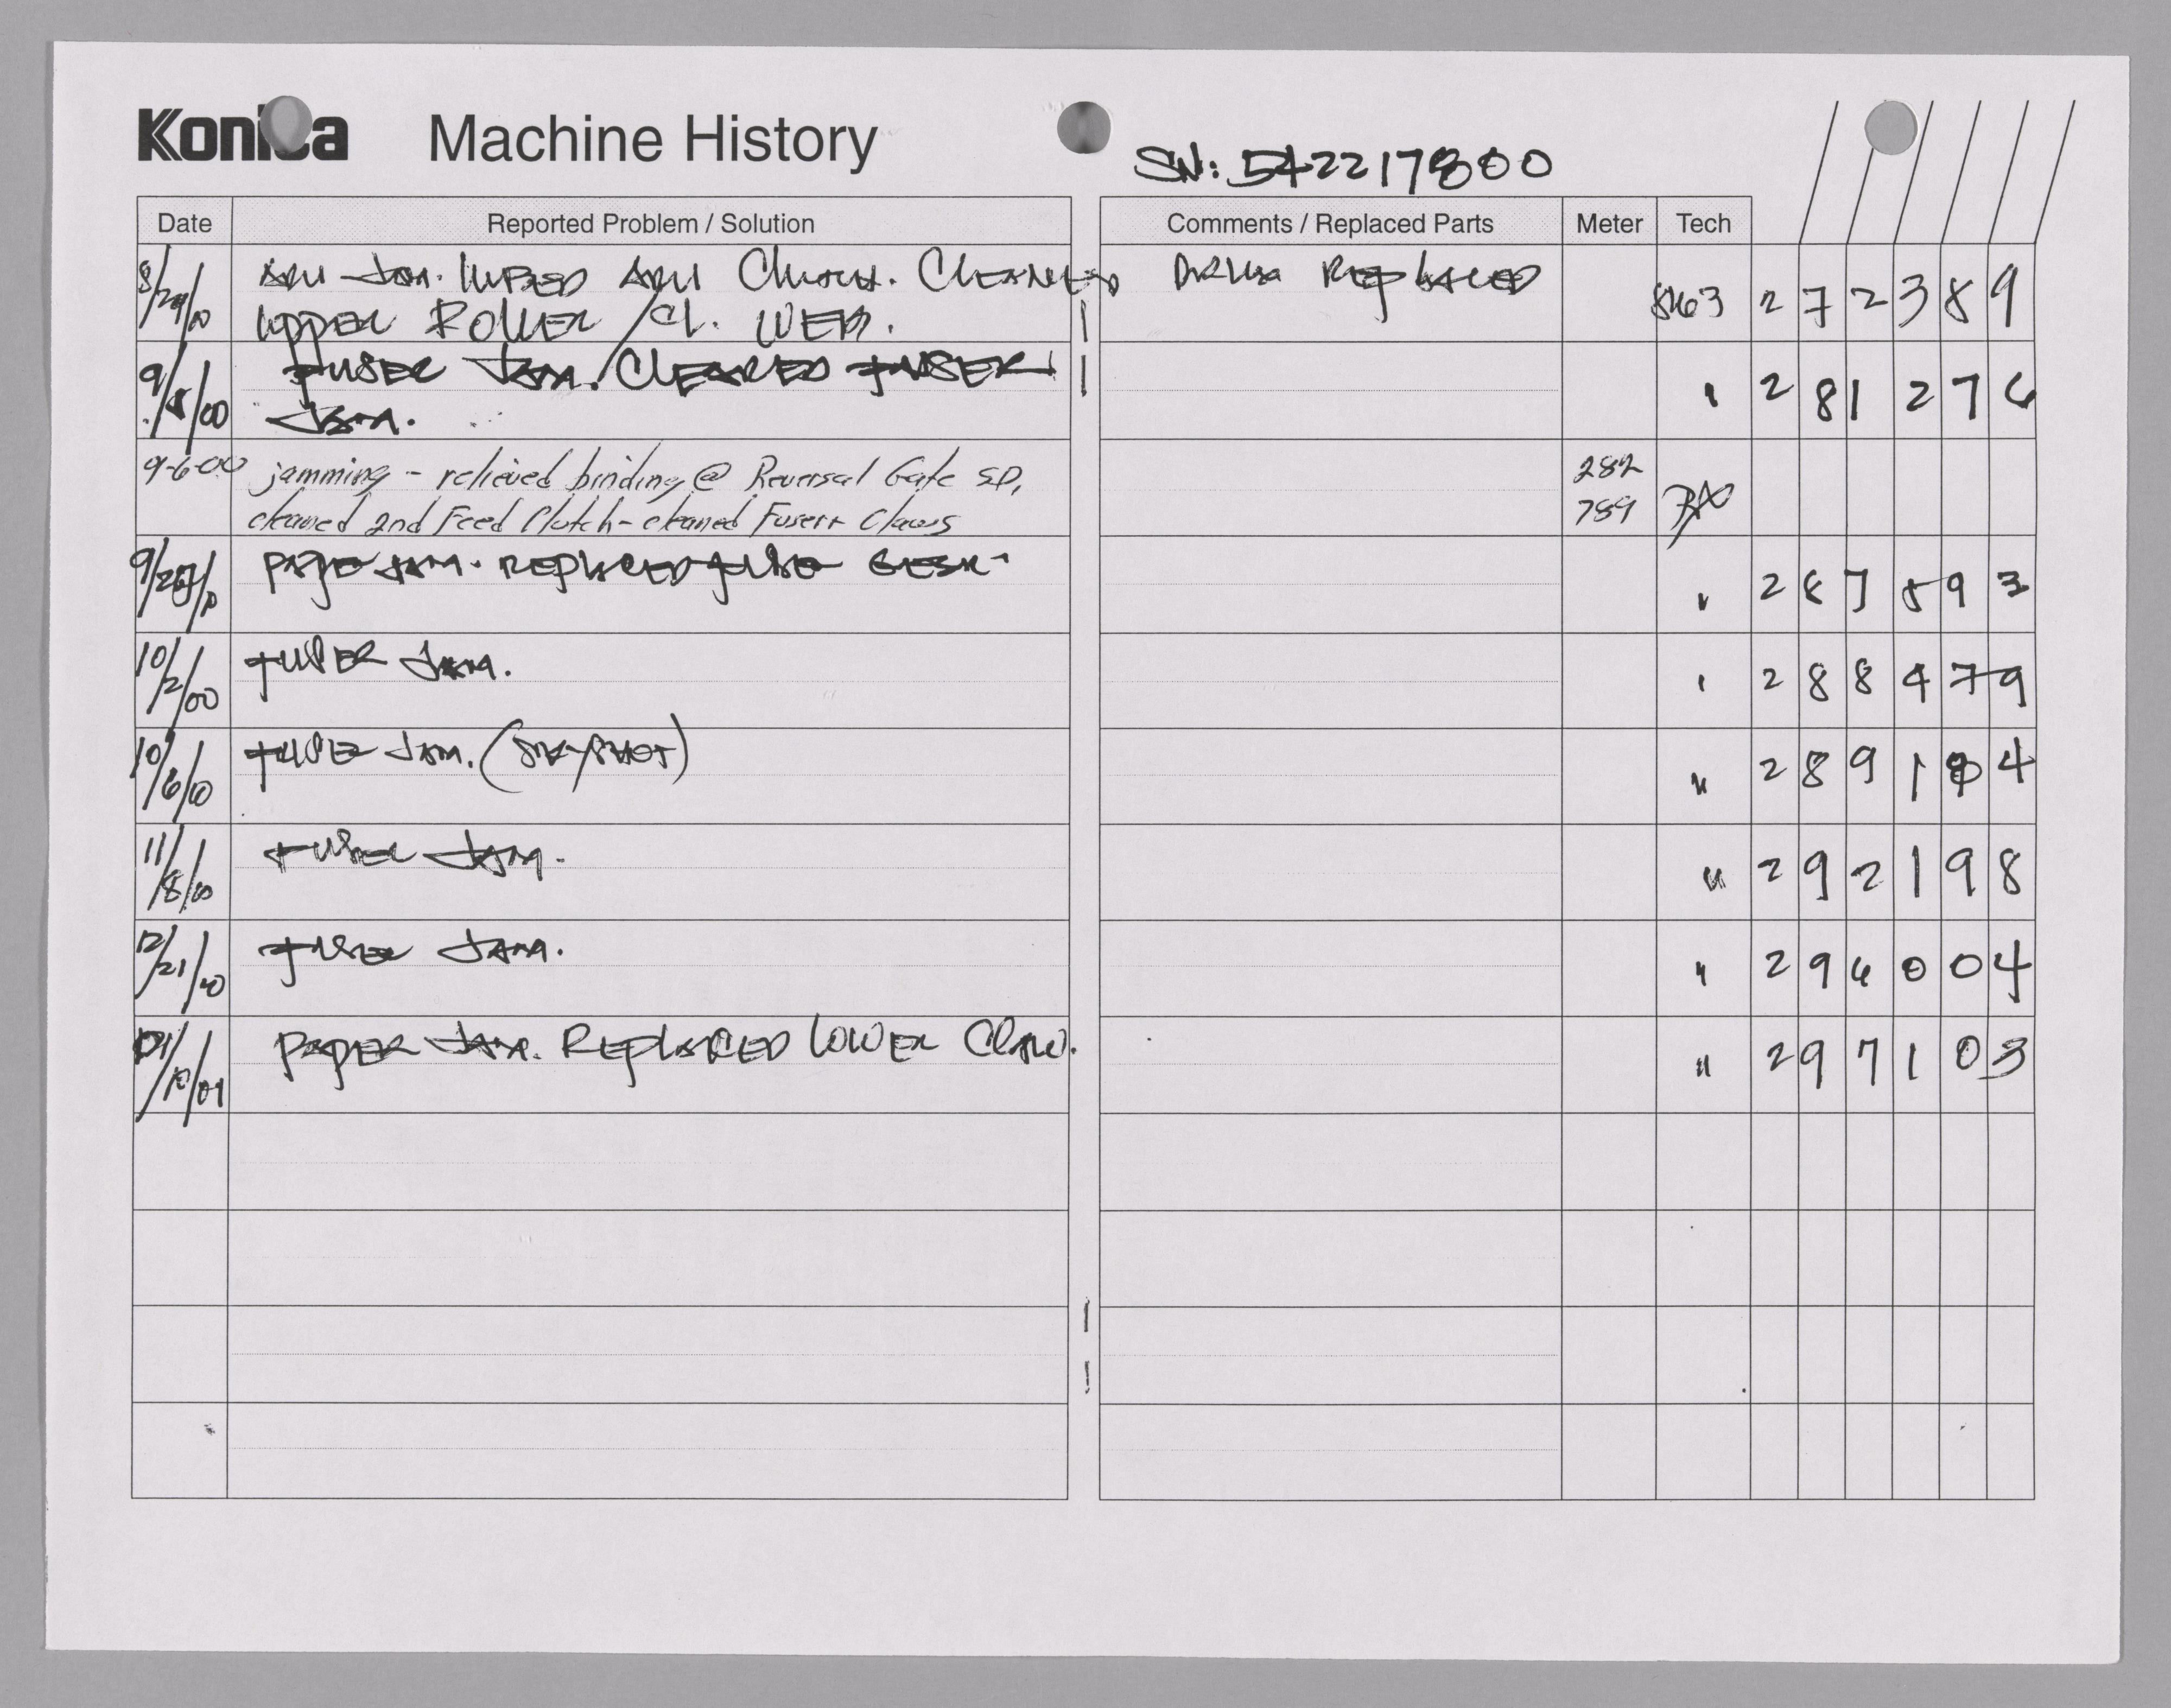 Konica Machine History
SN: 542217800
Date Reported Problem / Solution Comments / Replaced Parts Meter Tech
8/29/00 ADU JAM. WIPED ADU Clutch. CleaneD DRUM REplaced 863 272389
Upper Roller / Cl. WEB.
9/5/00 Fuser Jam. Cleared Fuser 281276
Jam.
9-6-00 jamming - relieved binding @ Reversal Gate SD, 282
cleaned 2nd Feed Clutch - cleaned Fuser Claws 789
paper Jam. Replaced Fuse 287893
10/2/00 Fuser Jam. 288479
10/6/00 Fuser Jam. 2891 4
11/8/00 Fuser Jam. " 292198
12/21/00 Fuser Jam. " 296004
01/10/01 Paper Jam. Replaced lower Claw. " 297103